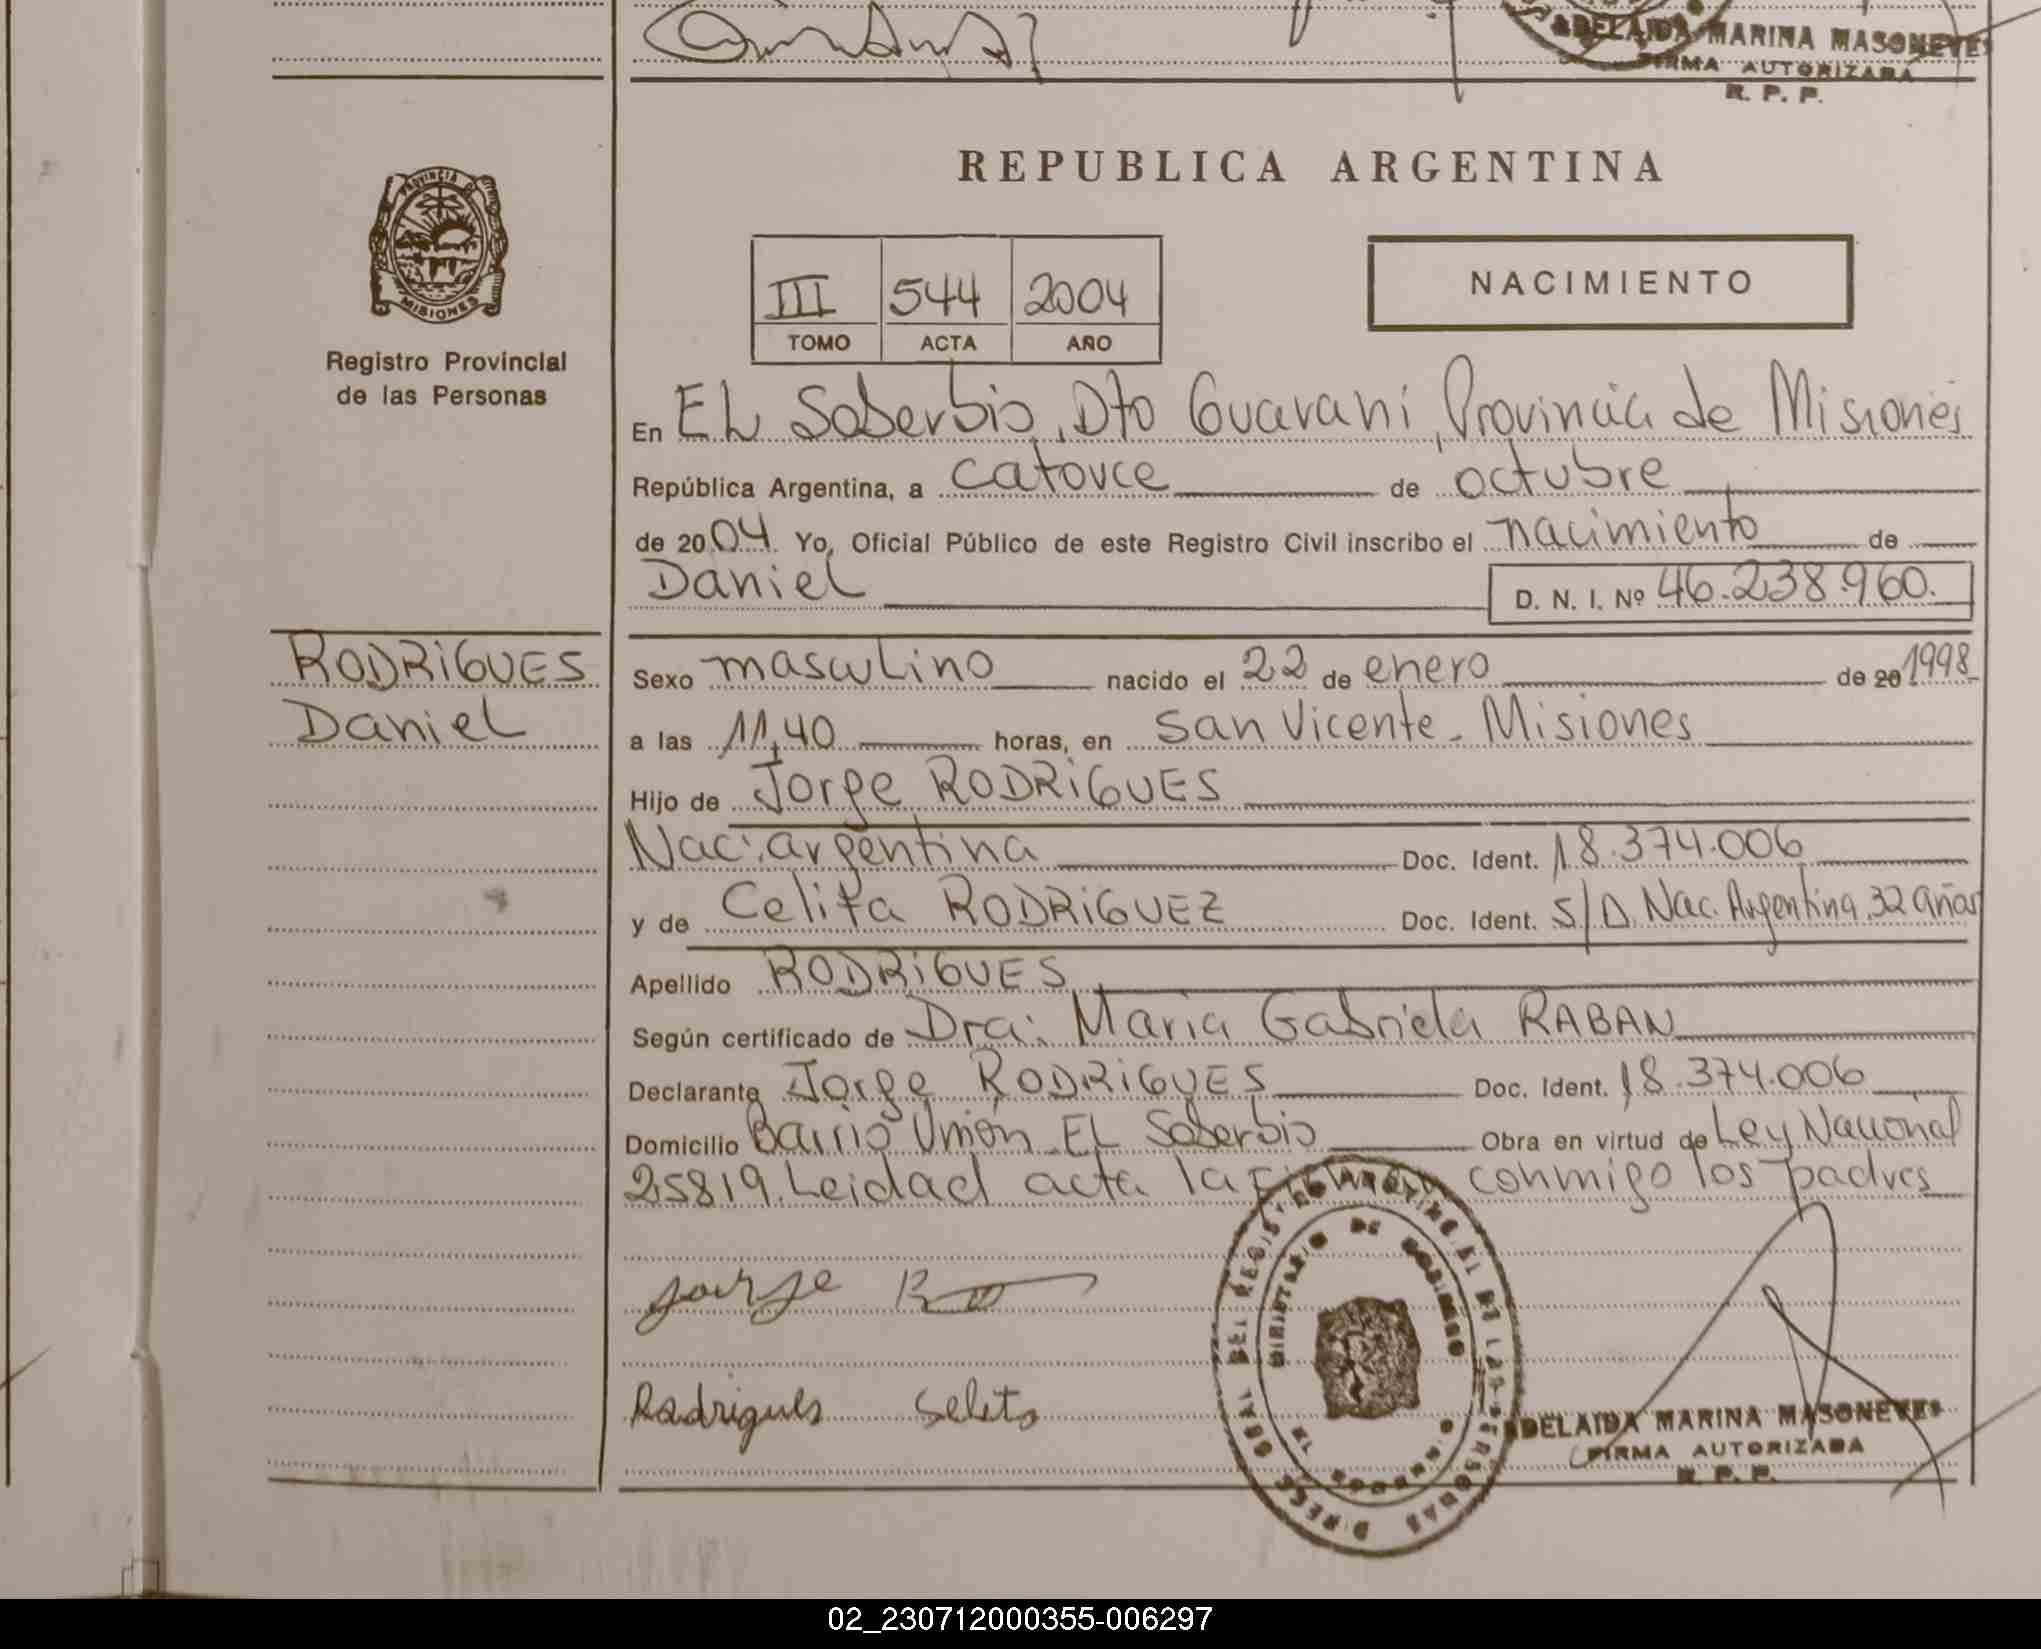 ADELAIDA MARINA MASONEVES
FIRMA AUTORIZADA
R. P. P.
PROVINCIA DE
MISIONES
Registro Provincial
de las Personas
REPUBLICA ARGENTINA
III 544 2004
TOMO ACTA AÑO
NACIMIENTO
En EL Soberbio, Dto Guaraní, Provincia de Misiones
República Argentina, a catorce de octubre
de 2004 Yo, Oficial Público de este Registro Civil inscribo el nacimiento de
Daniel D. N. I. Nº 46.238.960.
RODRIGUES
Daniel
Sexo masculino nacido el 22 de enero de 20 1998
a las 11,40 horas, en San Vicente - Misiones
Hijo de Jorge RODRIGUES
Nac: argentina Doc. Ident. 18.374.006
y de Celita RODRIGUEZ Doc. Ident. S/D. Nac. Argentina, 32 años
Apellido RODRIGUES
Según certificado de Dra: Maria Gabriela RABAN
Declarante Jorge RODRIGUES Doc. Ident. 18.374.006
Domicilio Barrio Unión EL Soberbio Obra en virtud de Ley Nacional
25819. Leidad acta la conmigo los padres
Jorge
Rodrigues Selito
ADELAIDA MARINA MASONEVES
FIRMA AUTORIZADA
R. P. P.
02_230712000355-006297